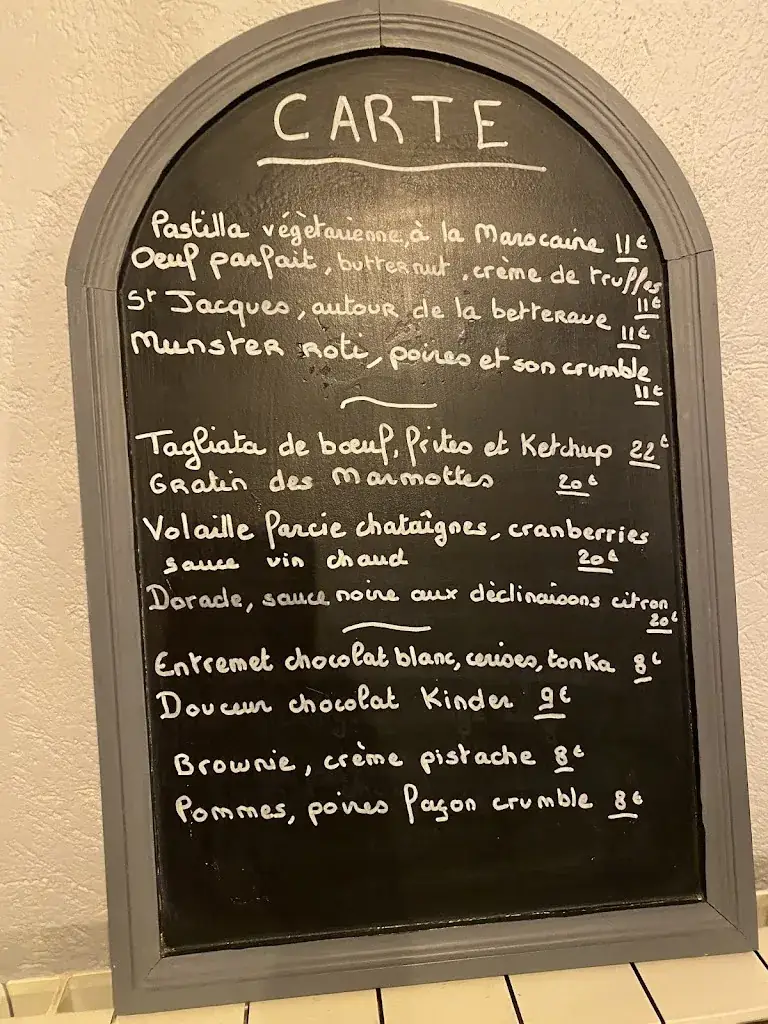 CARTE
Pastilla végètarienne, à la Marocaine 11€
Oeuf parfait, butternut, crème de truffes
11€
St Jacques, autour de la betterave
11€
Munster roti, poires et son crumble
11€
Tagliata de bœuf, frites et Ketchup 22€
Gratin des Marmottes 20€
Volaille farcie chataîgnes, cranberries
sauce vin chaud 20€
Dorade, sauce noire aux dèclinaisons citron
20€
Entremet chocolat blanc, cerises, tonka 8€
Douceur chocolat Kinder 9€
Brownie, crème pistache 8€
Pommes, poires façon crumble 8€